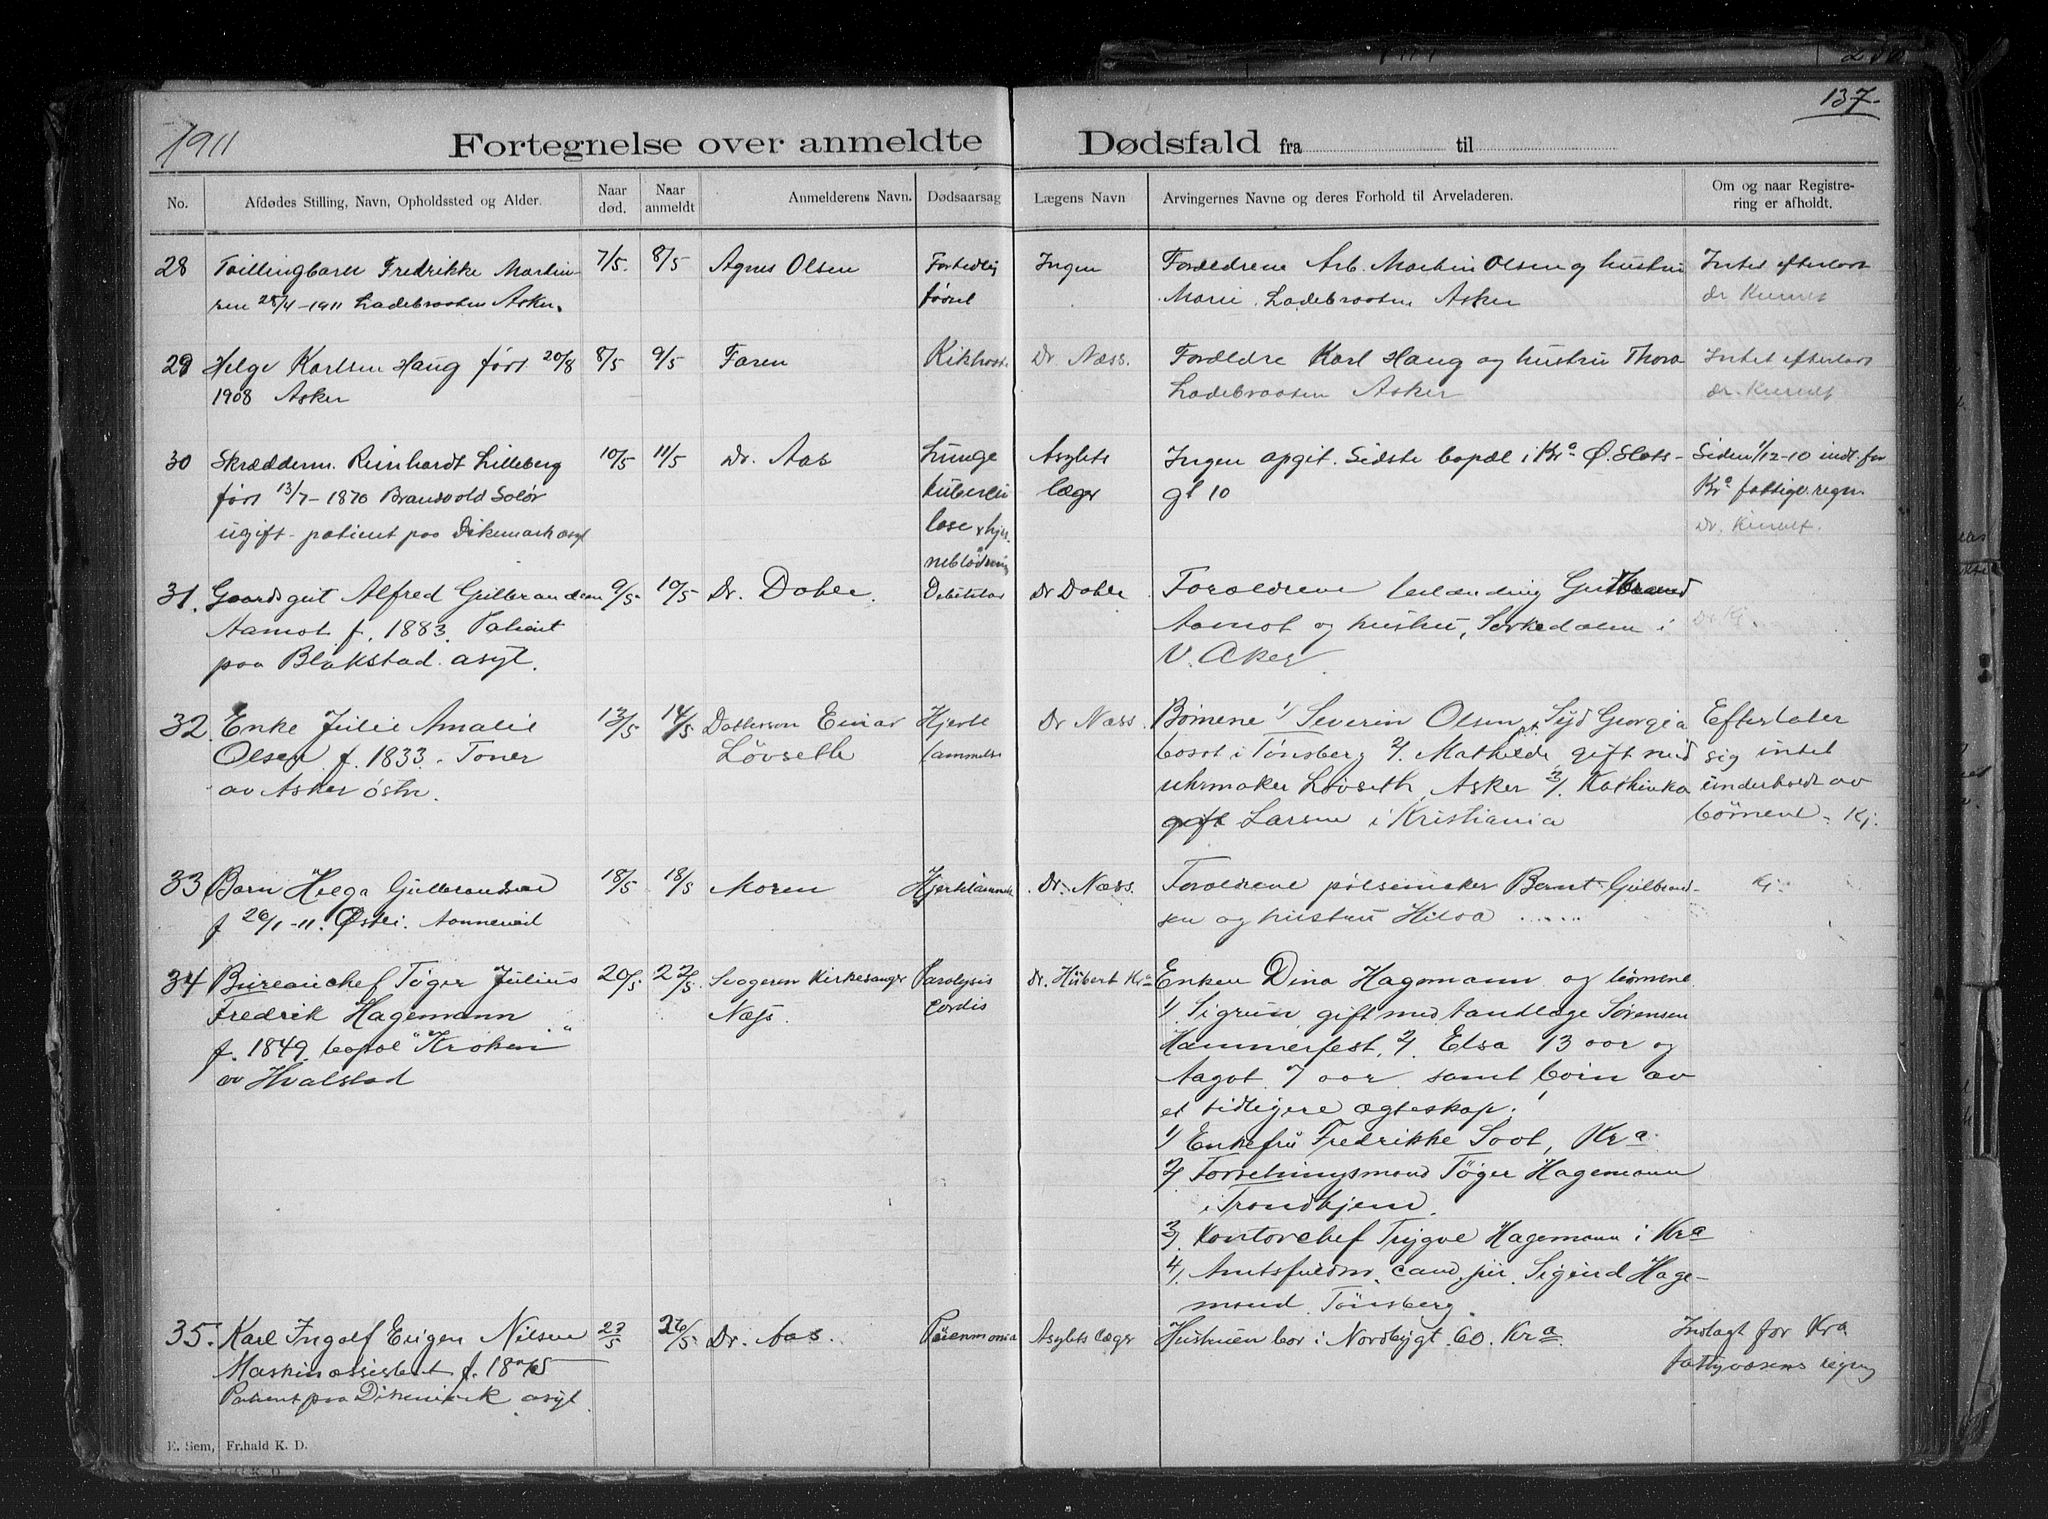 137.
1911
Fortegnelse over anmeldte Dødsfald fra til
No.
Afdødes Stilling, Navn, Opholdssted og Alder.
Naar død.
Naar anmeldt
Anmelderens Navn.
Dødsaarsag
Lægens Navn
Arvingernes Navne og deres Forhold til Arveladeren.
Om og naar Registre-
ring er afholdt.
28
Tvillingbarn Fredrikke Martin-
sen 25/4-1911 Ladebraaten Asker.
7/5.
8/5
Agnes Olsen
Fortidlig
født
Ingen
Forældrene Arb. Martin Olsen og hustru
Marie. Ladebraaten Asker
Intet efterladt
29
Helge Karlsen Haug født 20/8
1908 Asker
8/5
9/5
Faren
Kikhoste
Dr Næss.
Forældre Karl Haug og hustru Thora
Ladebraaten Asker
Intet efterladt
30
Skrædderm. Reinhardt Lilleberg
født 13/7-1870 Brandvold Solør
ugift - patient paa Dikemark asyl
10/5
11/5
Dr. Aas
Lunge
tuberku
lose & hjer-
neblødning
Asylets
læger
Ingen opgit. Sidste bopæl i Kra Ø. Slots-
gt 10
Siden 1/12-10 indl. for
Kra fattigv. regn.
31.
Gaardsgut Alfred Gulbrandsen
Aamot f. 1883. Patient
paa Blakstad asyl.
9/5
10/5
Dr. Dahle.
Dr Dahle
Forældrene Gulbrand
Aamot og hustru, Sørkedalen i
V. Aker
Dr. Kj.
32.
Enke Julie Amalie
Olsen f. 1833. Toner
av Asker østr.
13/5
14/5
Datterson Einar
Løvseth
Hjerte
lammelse
Dr Næss.
Børnene 1/ Severin Olsen, Syd Georgia
bosat i Tønsberg 2/. Mathilde, gift med
uhrmaker Løvseth, Asker 3/. Kathinka
gift Larsen i Kristiania
Efterlater
sig intet
underholdt av
børnene. Kj.
33
Barn Helga Gulbrandsen
f 26/1-11. Østli. Aanneröd
18/5
18/5
Moren
Hjertelammelse
Dr. Næss.
Forældrene pølsemaker Bernt Gulbrand-
sen og hustru Hilda .....
Kj.
34
Bureauchef Tøger Julius
Fredrik Hagemann
f. 1849. bopæl "Kroken"
av Hvalstad
20/5
22/5
Svogeren Kirkesanger
Næss.
Paralysis
Cordis
dr. Hübert Kra
Enken Dina Hagemann og børnene
1/ Sigrun, gift med tandlæge Sørensen
Hammerfest, 2/. Elsa 13 aar og
Aagot 7 aar samt børn av
et tidligere ægteskap:
1/ Enkefru Fredrikke Soot, Kra.
2/ Forretningsmand Tøger Hagemann
i Trondhjem.
3/. Kontorchef Trygve Hagemann i Kra
4/. Amtsfuldm. cand. jur. Sigurd Hage-
mand. Tønsberg.
35.
Karl Ingolf Eugen Nilsen
Maskinassistent f. 1875
Patient paa Dikemark asyl.
23/5
26/5
Dr. Aas.
Pneumonia
Asylets læger
Hustruen bor i Nordbygt. 60. Kra.
Indlagt for Kra
fattigvæsens regning
E. Sem, Fr.hald K. D.